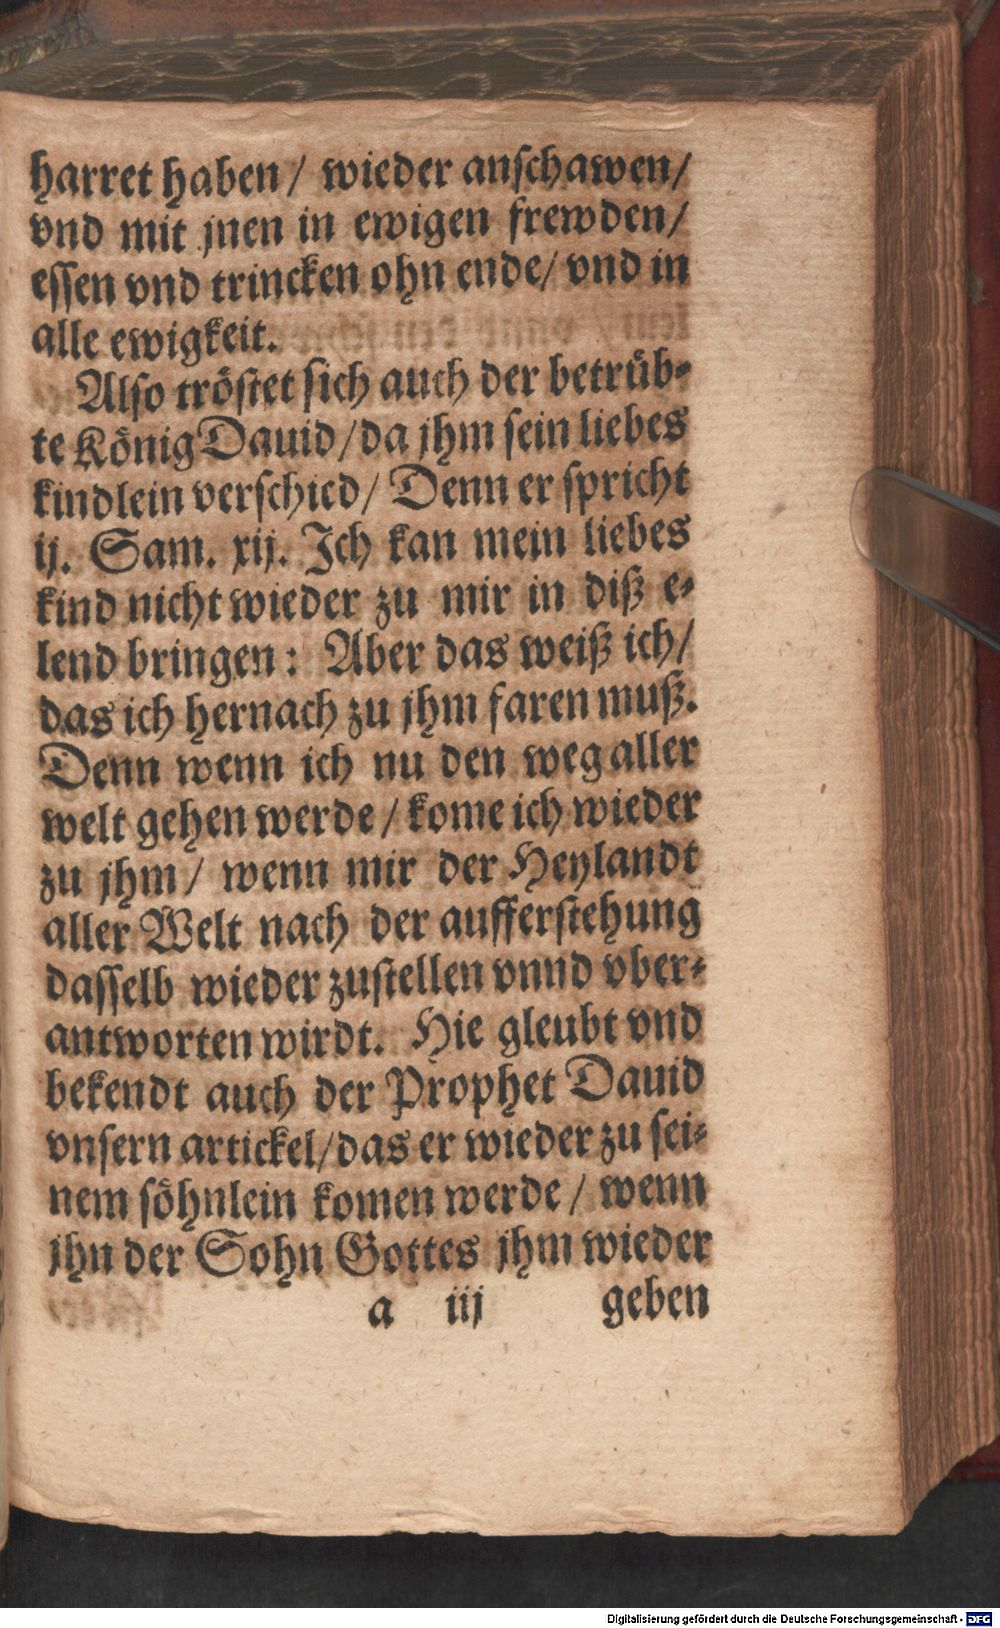 harret haben / wieder anschawen /
vnd mit jnen in ewigen frewden /
essen vnd trincken ohn ende / vnd in
alle ewigkeit.
Also tröstet sich auch der betrüb-
te König Dauid / da jhm sein liebes
kindlein verschied / Denn er spricht
ij. Sam. xij. Ich kan mein liebes
kind nicht wieder zu mir in diß e-
lend bringen : Aber das weiß ich /
das ich hernach zu jhm faren muß.
Denn wenn ich nu den weg aller
welt gehen werde / kome ich wieder
zu jhm / wenn mir der Heylandt
aller Welt nach der aufferstehung
dasselb wieder zustellen vnnd vber-
antworten wirdt. Hie gleubt vnd
bekendt auch der Prophet Dauid
vnsern artickel / das er wieder zu sei-
nem söhnlein komen werde / wenn
jhn der Sohn Gottes jhm wieder
a iij geben
Digitalisierung gefördert durch die Deutsche Forschungsgemeinschaft - DFG